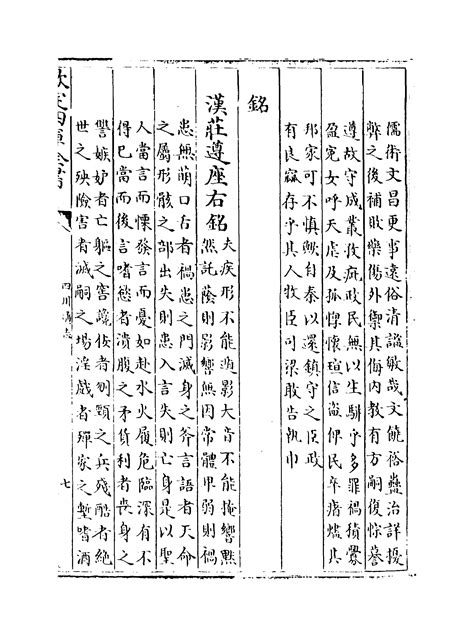 儒術文昌更事遠俗清謐敏哉文饒裕蠱治詳擾
弊之後補敗藥傷外禦其侮内教有方嗣復悰䜿
遵故守成叢孜疵政民無以生騈乎多罪禍積釁
盈寃女呼天虐及孤惸懐瑄信讒俾民卒瘏爐其
邦家可不慎歟自秦以還鎮守之臣政
有良寙存乎其人牧臣司梁敢告執巾
銘
漢莊遵座右銘
夫疾形不能遁影大音不能掩響黙
然託蔭則影響無因常體卑弱則禍
患無萌口舌者禍患之門滅身之斧言語者天命
之屬形骸之部出失則患入言失則亡身是以聖
人當言而懼發言而憂如赴水火履危臨深有不
得已當而後言嗜慾者潰腹之矛貨利者喪身之
讐嫉妒者亡軀之害讒佞者刎頸之兵殘酷者絶
世之殃陷害者滅嗣之場淫戲者殫家之塹嗜酒
欽定四庫全書
四川通志
七